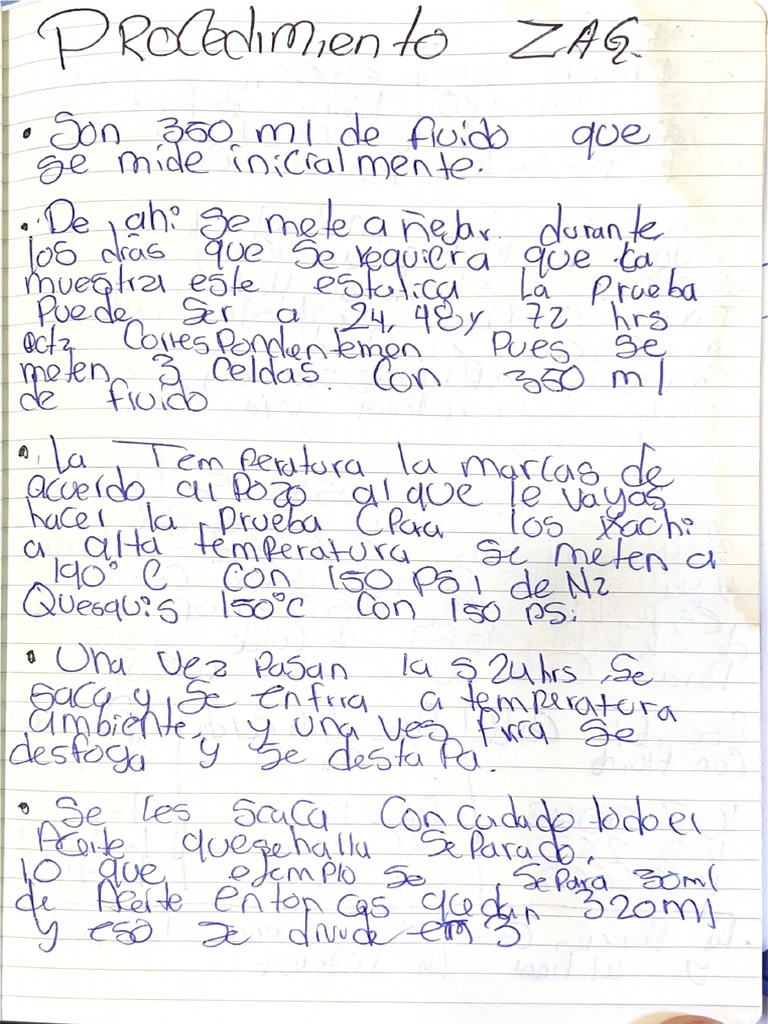 PROCedimiento ZAG.
• Son 350 ml de fluido que
se mide inicialmente.
• De ahi se mete a ñejar durante
los días que se requiera que la
muestra este estatica la Prueba
Puede ser a 24, 48 y 72 hrs
Correspondentemen Pues se
meten 3 Celdas Con 350 ml
de fluido
• La Temperatura la marcas de
acuerdo al Pozo al que le vayas
hacer la Prueba (Para los Xachi
a alta temperatura se meten a
190° C con 150 PSI de N2
Quesquis 150°C Con 150 PSi
• Una vez Pasan las 24hrs se
saca y se enfria a temperatura
ambiente, y una ves fria se
desfoga y se destaPa.
• Se les scaca Con cudado todo el
Aceite que se halla SePaRado,
lo que ejemplo se sepaRa 30ml
de Aceite entonces quedan 320ml
y eso se divide em 3